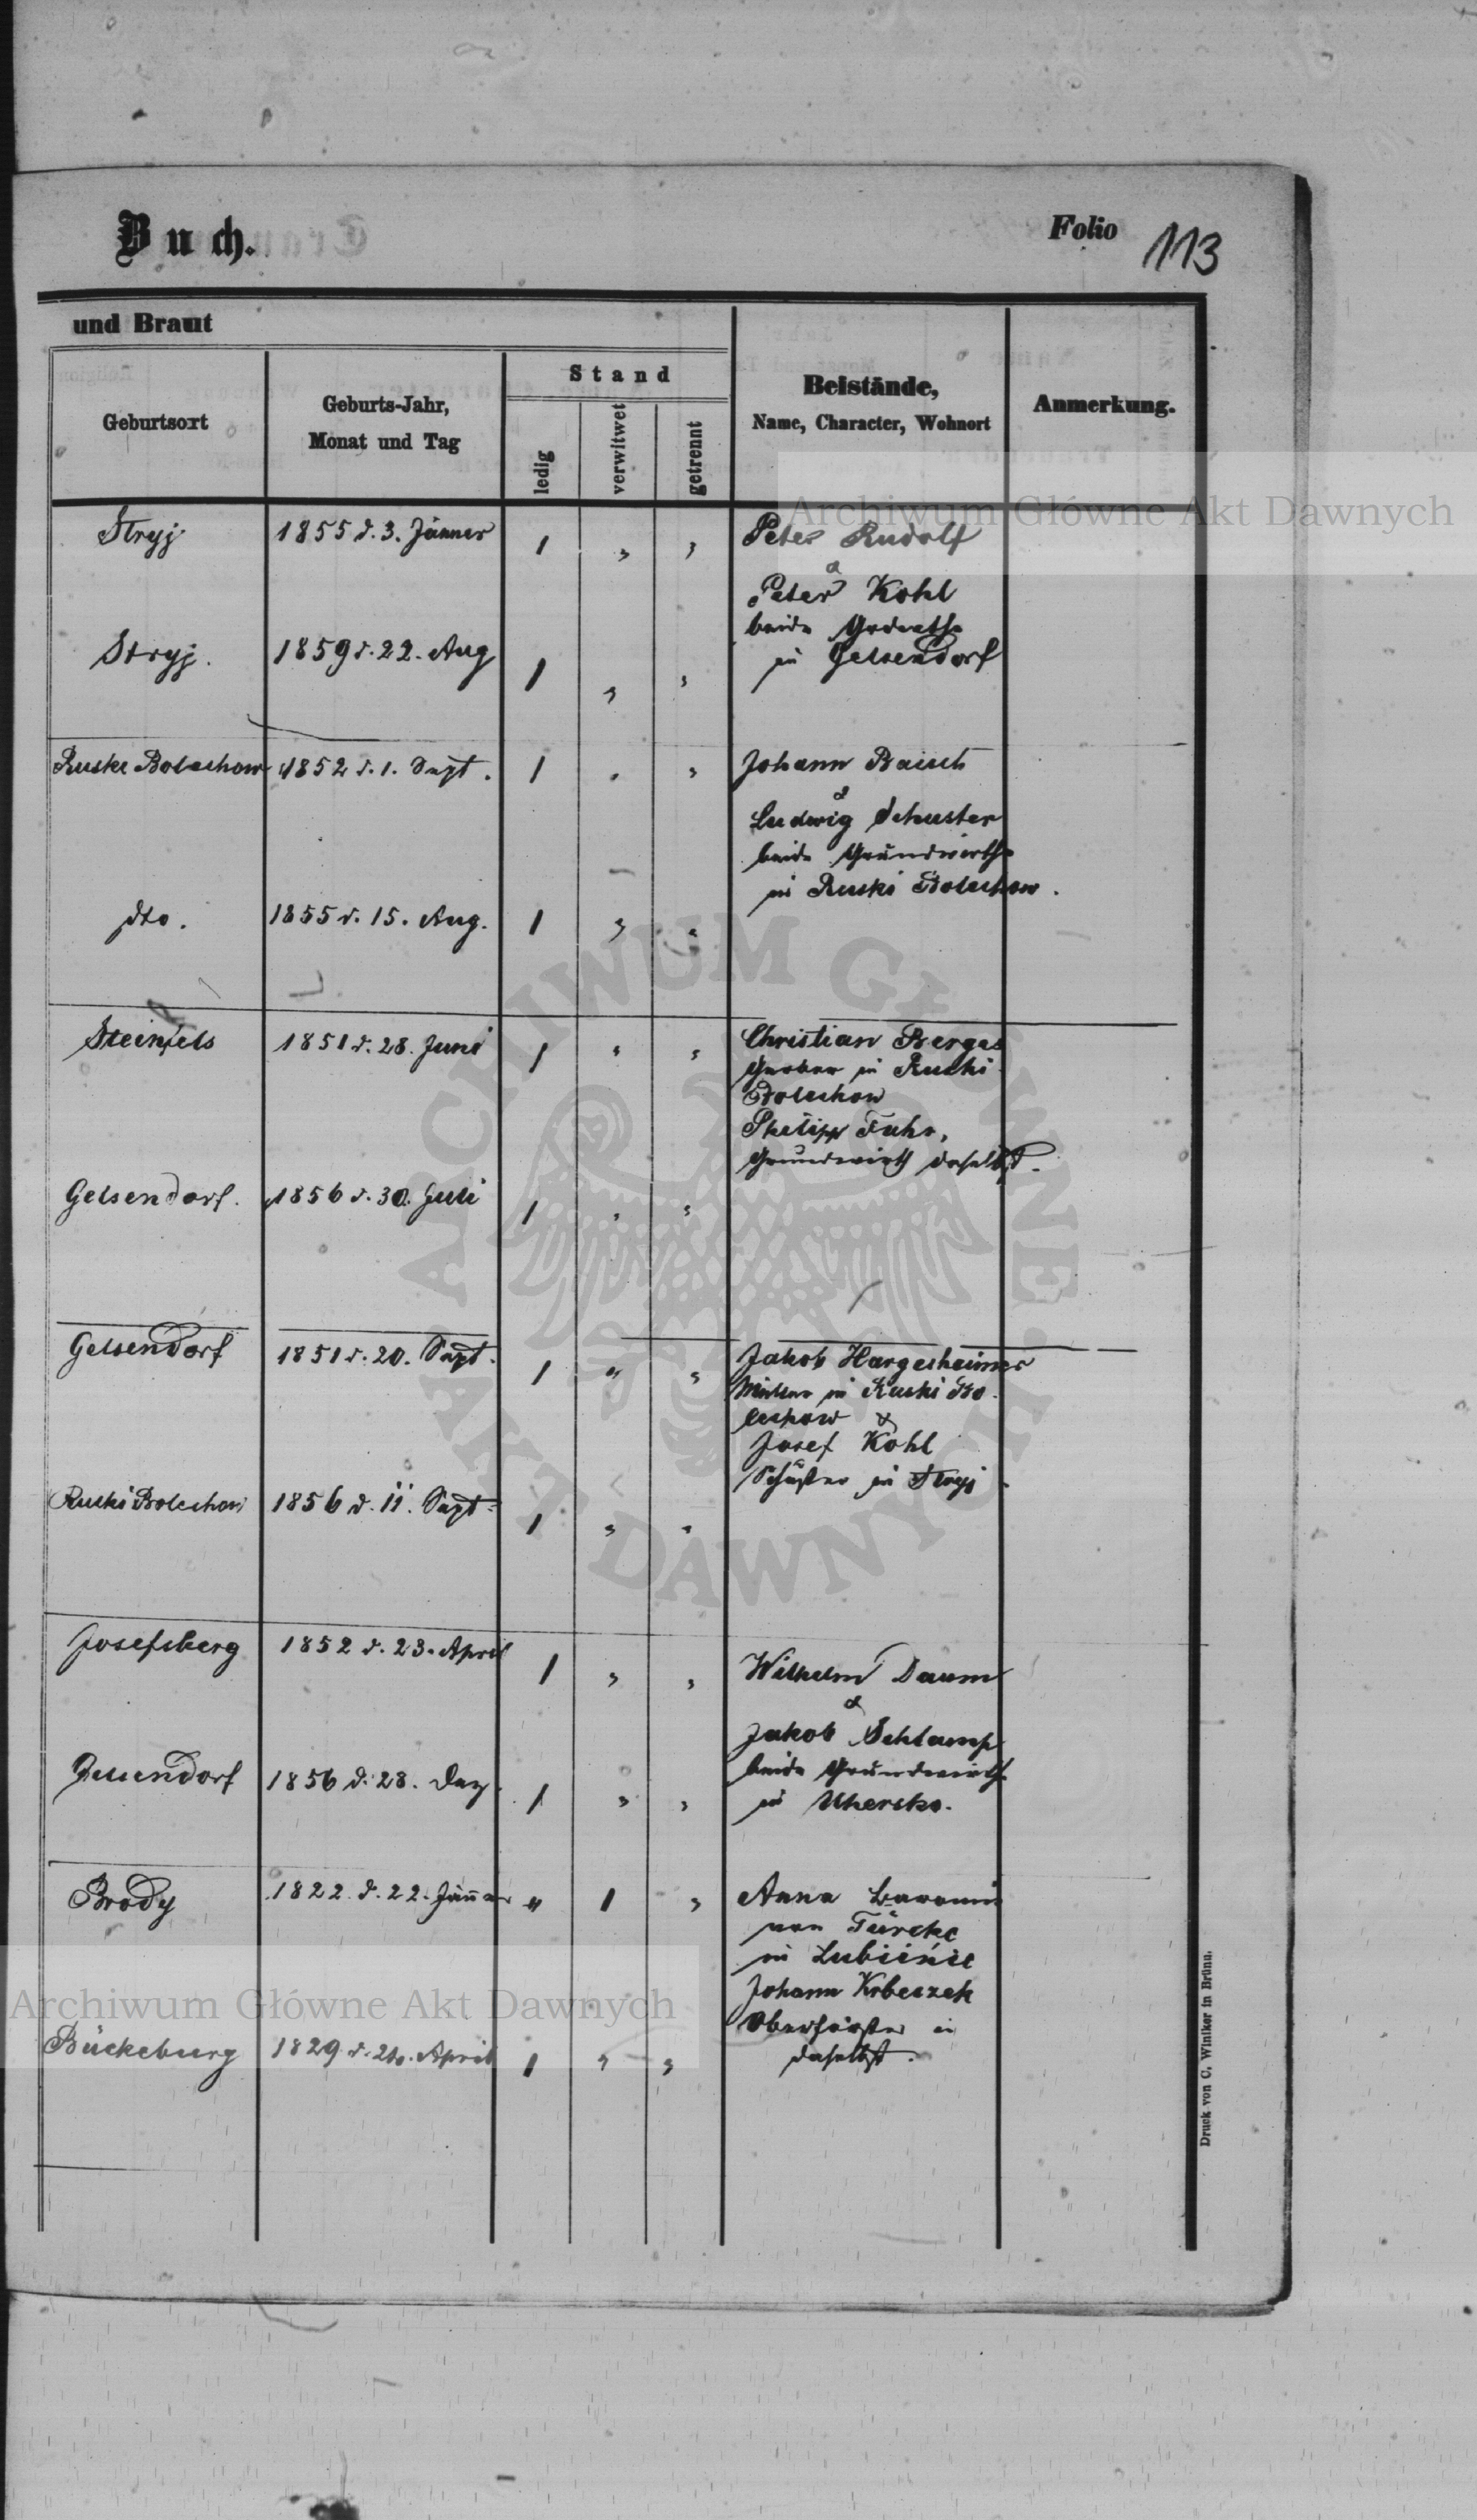 Buch.
Folio 113
und Braut
Geburtsort
Geburts-Jahr,
Monat und Tag
Stand
ledig
verwitwet
getrennt
Beistände,
Name, Character, Wohnort
Anmerkung.
Archiwum Główne Akt Dawnych
Stryj 1855 d. 3. Jänner 1 " " Peter Rudolf
&
Peter Kohl
beide
in Gelsendorf
Stryj. 1859 d. 22. Aug 1 " "
Ruski Bolechow 1852 d. 1. Sept. 1 " " Johann Baisch
&
Ludwig Schuster
beide Grundwirthe
in Ruski Bolechow.
dto. 1855 d. 15. Aug. 1 " "
Steinfels 1851 d. 28. Juni 1 " " Christian Berges
Gerber in Ruski
Bolechow
Philipp Fuhr,
Grundwirth daselbst.
Gelsendorf. 1856 d. 30. Juli 1 " "
Gelsendorf 1851 d. 20. Sept. 1 " " Jakob Hargesheimer
Müller in Ruski Bo
lechow &
Josef Kohl
Schuster in Stryj.
Ruski Bolechow 1856 d. 11. Sept. 1 " "
Josefsberg 1852 d. 23. April 1 " " Wilhelm Daum
&
Jakob Schlamp
beide Grundwirthe
in Uhersko.
Gelsendorf 1856 d. 28. Dez. 1 " "
Brody 1822 d. 22. Jänner " 1 " Anna Baronin
von Türcke
in Lubience
Johann Krbeczek
Oberförster in
daselbst.
Bückeburg 1829 d. April 1 " "
Archiwum Główne Akt Dawnych
ARCHIWUM GŁÓWNE AKT DAWNYCH
Druck von C. Winiker in Brünn.